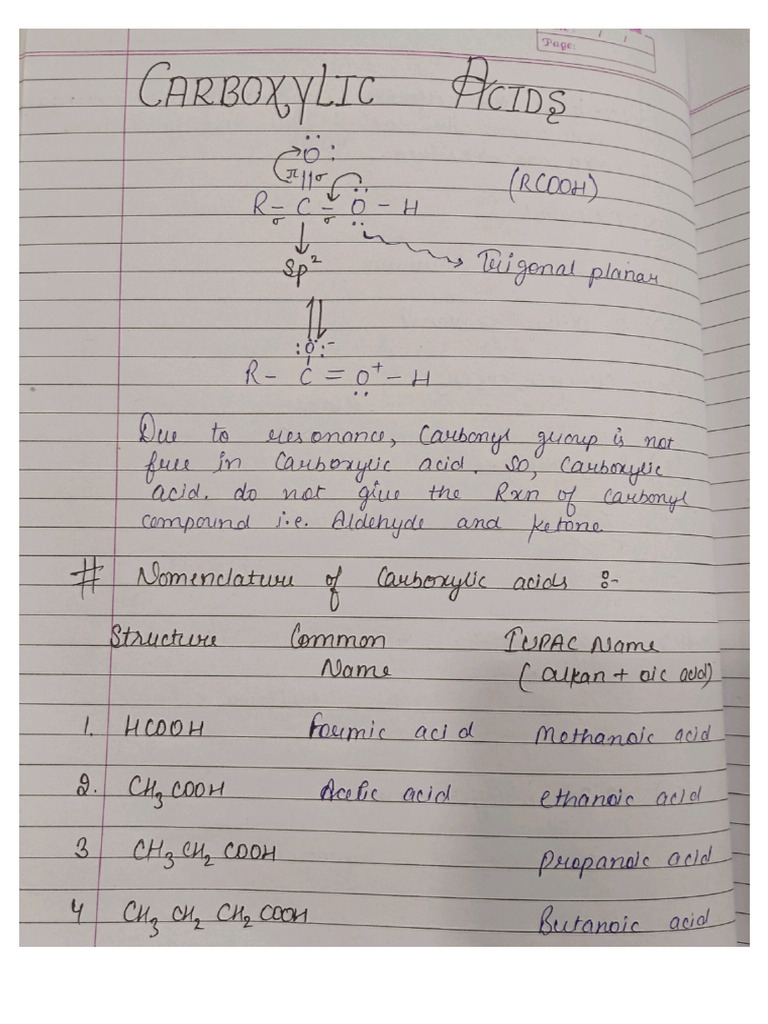 Page:
CARBOXYLIC ACIDS
O
π || σ
R - C - O - H (RCOOH)
σ σ
Sp² Trigonal planar
:O:⁻
R - C = O⁺ - H
Due to resonance, Carbonyl group is not
free in Carboxylic acid. So, Carboxylic
acid. do not give the Rxn of carbonyl
compound i.e. Aldehyde and ketone
# Nomenclature of Carboxylic acids :-
Structure Common IUPAC Name
Name (alkan + oic acid)
1. HCOOH Formic acid Methanoic acid
2. CH₃COOH Acetic acid ethanoic acid
3 CH₃CH₂COOH Propanoic acid
4 CH₃CH₂CH₂COOH Butanoic acid